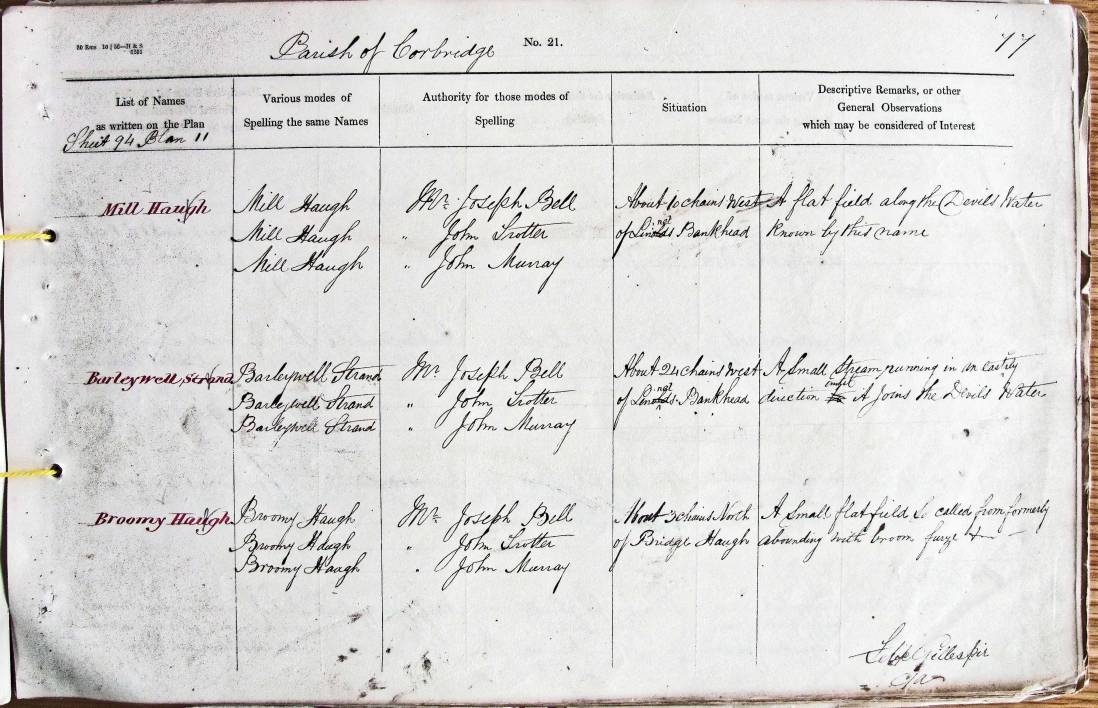 50 Rms 10 | 56—H & S
Parish of Corbridge
No. 21.
77
List of Names
as written on the Plan
Sheet 94 Plan 11
Various modes of
Spelling the same Names
Authority for those modes of
Spelling
Situation
Descriptive Remarks, or other
General Observations
which may be considered of Interest
Mill Haugh
Mill Haugh
Mr. Joseph Bell
About 10 chains West
A flat field along the Devils Water
Mill Haugh
" John Trotter
of Bankhead
Known by this name
Mill Haugh
" John Murray
Barleywell Strand
Barleywell Strand
Mr. Joseph Bell
About 24 chains West
A Small Stream running in an Eastly
Barleywell Strand
" John Trotter
of Bankhead
direction & Joins the Devils Water
Barleywell Strand
" John Murray
Broomy Haugh
Broomy Haugh
Mr. Joseph Bell
About 3 chains North
A Small flat field So called from formerly
Broomy Haugh
" John Trotter
of Bridge Haugh
abounding with broom furze &c
Broomy Haugh
" John Murray
Gillespie
C/a